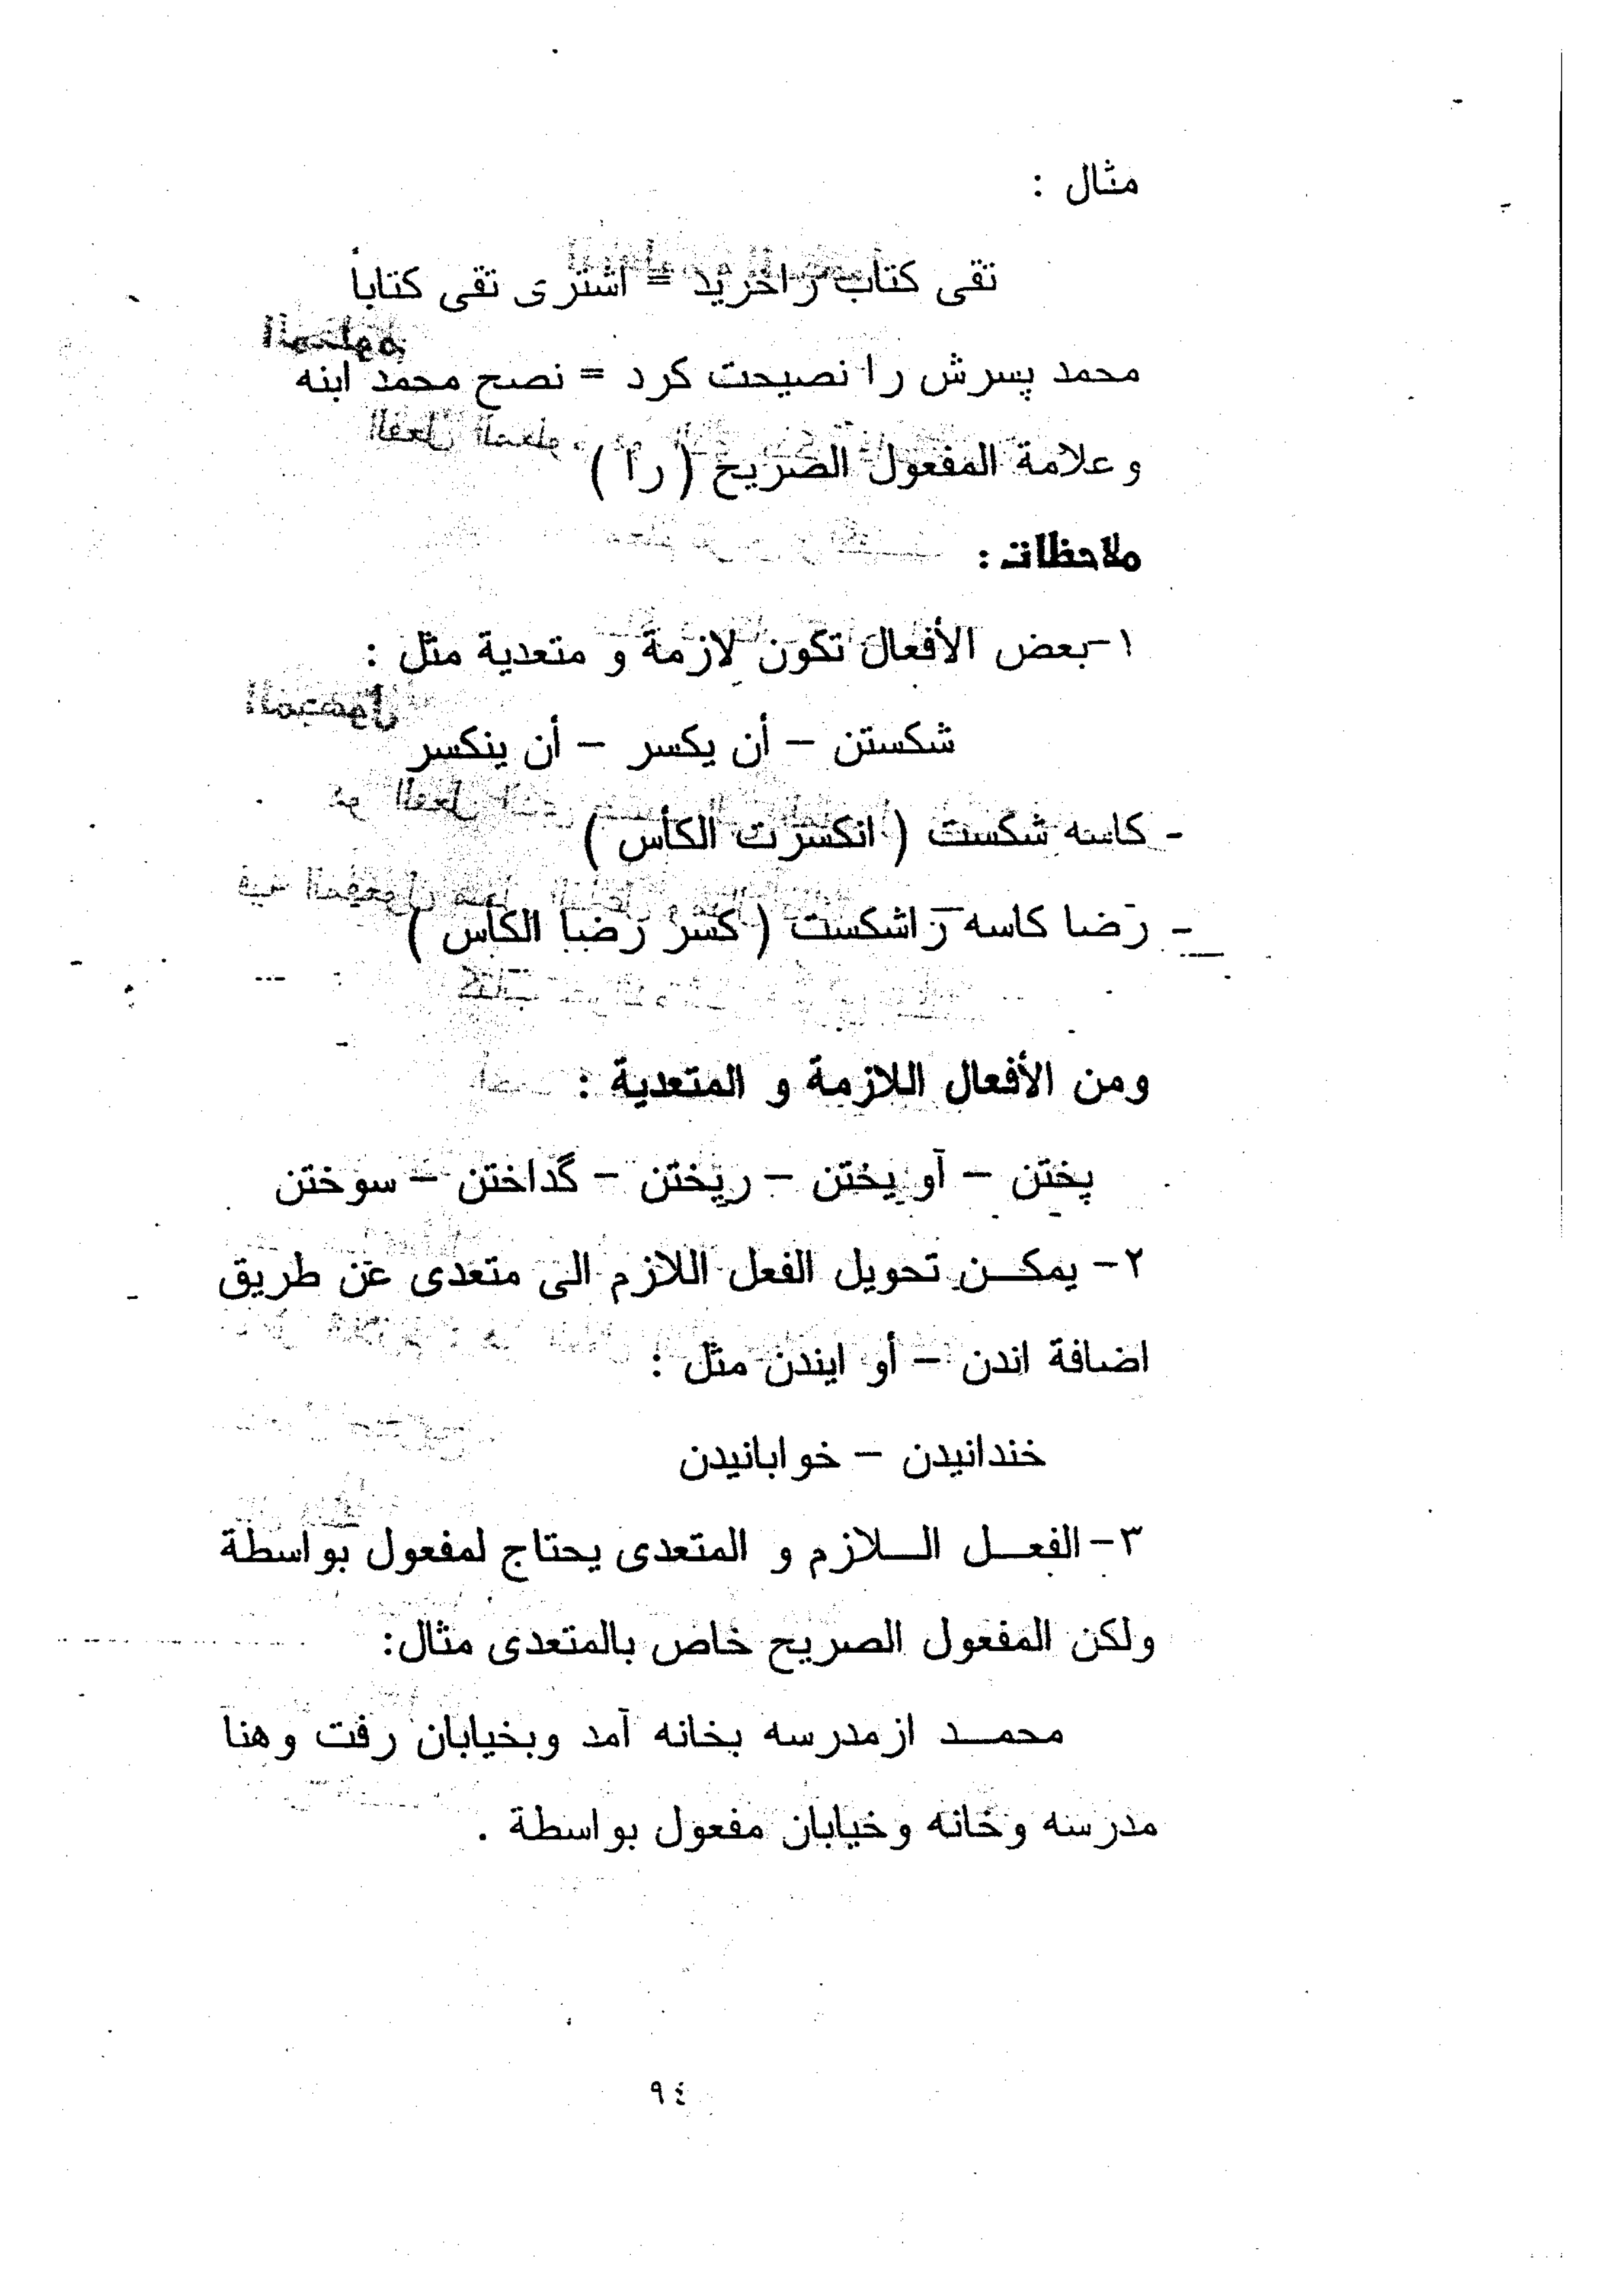 مثال :
تقى كتاب راخريد = اشترى تقى كتاباً
محمد پسرش را نصيحت كرد = نصح محمد ابنه
و علامة المفعول الصريح ( را )
ملاحظات :
١-بعض الأفعال تكون لازمة و متعدية مثل :
شكستن – أن يكسر – أن ينكسر
- كاسه شكست ( انكسرت الكأس )
- رضا كاسه راشكست ( كسر رضا الكأس )
ومن الأفعال اللازمة و المتعدية :
پختن – آويختن – ريختن – گداختن – سوختن
٢- يمكن تحويل الفعل اللازم الى متعدى عن طريق
اضافة اندن – أو ايندن مثل :
خندانيدن – خوابانيدن
٣-الفعل اللازم و المتعدى يحتاج لمفعول بواسطة
ولكن المفعول الصريح خاص بالمتعدى مثال:
محمد ازمدرسه بخانه آمد وبخيابان رفت وهنا
مدرسه وخانه وخيابان مفعول بواسطة .
٩٤